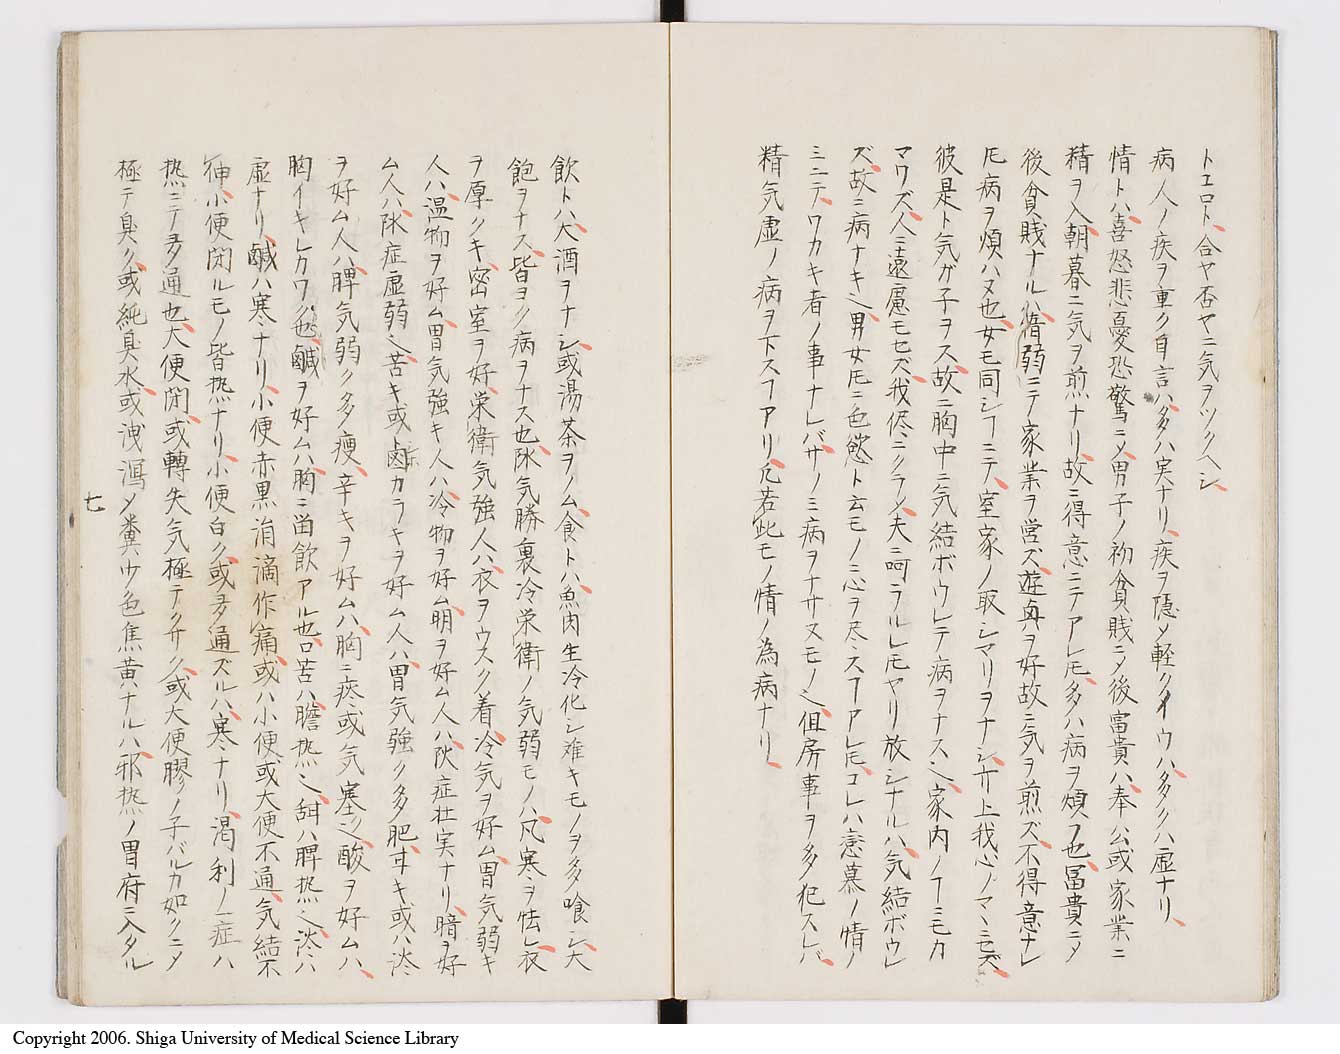 トエロト合ヤ否ヤニ気ヲツクヘシ
病人ノ疾ヲ重ク自言ハ多ハ実ナリ疾ヲ隠メ軽クイウハ多クハ虚ナリ
情トハ喜怒悲憂恐驚ニメ男子ノ初貧賤ニメ後富貴ハ奉公或家業ニ
精ヲ入朝暮ニ気ヲ煎ナリ故ニ得意ニテアレ𪜈多ハ病ヲ煩フ也冨貴ニメ
後貧賤ナルハ惰弱ニテ家業ヲ営ズ遊興ヲ好故ニ気ヲ煎ズ不得意ナレ
𪜈病ヲ煩ハヌ也女モ同シヿニテ室家ノ取シマリヲナシ廾上我心ノマヽニセズ
彼是ト気ガ子ヲス故ニ胸中ニ気結ボウレテ病ヲナス乄家内ノヿニモカ
マワズ人ニ遠慮モセズ我侭ニクラシ夫ニ呵ラルレ𪜈ヤリ放シナルハ気結ボウレ
ズ故ニ病ナキ乄男女𪜈ニ色慾ト云モノニ心ヲ尽スヿアレ𪜈コレハ恋慕ノ情ノ
ミニテワカキ者ノ事ナレバサノミ病ヲナサヌモノ乄但房事ヲ多犯スレバ
精気虚ノ病ヲ下スヿアリ凡若此モノ情ノ為病ナリ
飲トハ大酒ヲナシ或湯茶ヲノム食トハ魚肉生冷化シ难キモノヲ多喰シ大
飽ヲナス皆ヨク病ヲナス也脉気勝裏冷栄衛ノ気弱モノハ凡寒ヲ怯レ衣
ヲ厚クキ密室ヲ好栄衛気強人ハ衣ヲウスク着冷気ヲ好ム胃気弱キ
人ハ温物ヲ好ム胃気強キ人ハ冷物ヲ好ム明ヲ好ム人ハ症壮実ナリ暗ヲ好
ム人ハ症虚弱乄苦キ或鹵カラキヲ好ム人ハ胃気強ク多肥耳キ或ハ淡
ヲ好ム人ハ脾気弱ク多痩辛キヲ好ムハ胸ニ痰或気塞乄酸ヲ好ムハ
胸イキレカワク也鹹ヲ好ムハ胸ニ畄飲アル也口苦ハ膽热乄甜ハ脾热乄淡ハ
虚ナリ鹹ハ寒ナリ小便赤黒涓滴作痛或ハ小便或大便不通気結不
伸小便閉ルモノ皆热ナリ小便白ク或多通ズルハ寒ナリ渇利ノ一症ハ
热ニテ多通也大便閉或轉失気極テクサク或大便膠ノ子バルカ如クニメ
極テ臭ク或純臭水或洩瀉メ糞少色焦黄ナルハ邪热ノ胃府ニ入タル
七
Copyright 2006. Shiga University of Medical Science Library